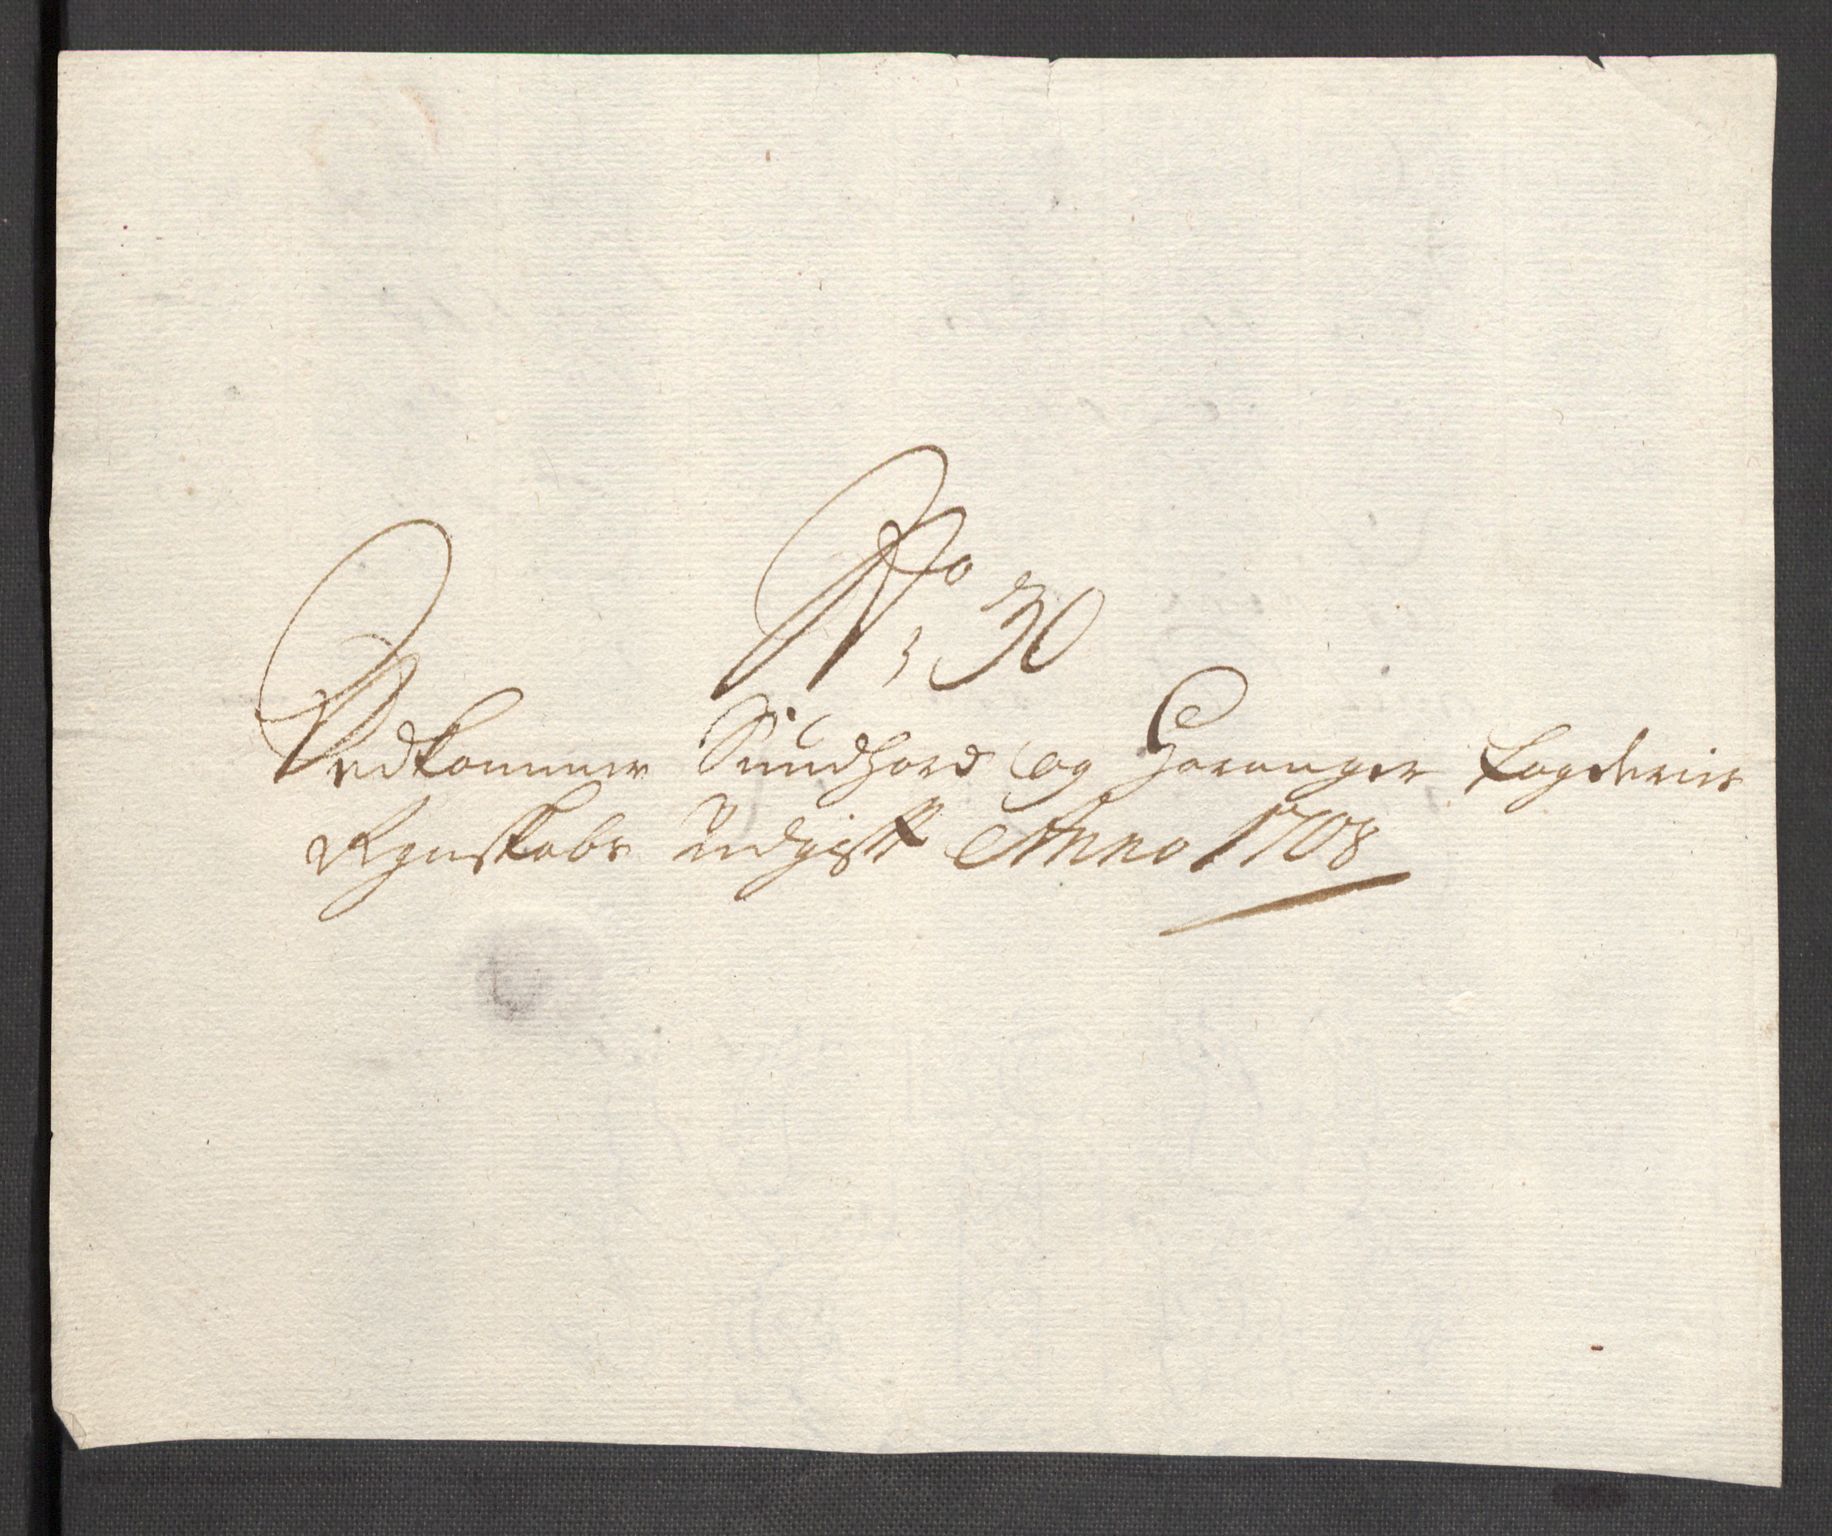 No 30
Vedkommer Sundhord og Haranger Fogderier
Regnskabs Udgift Anno 1708